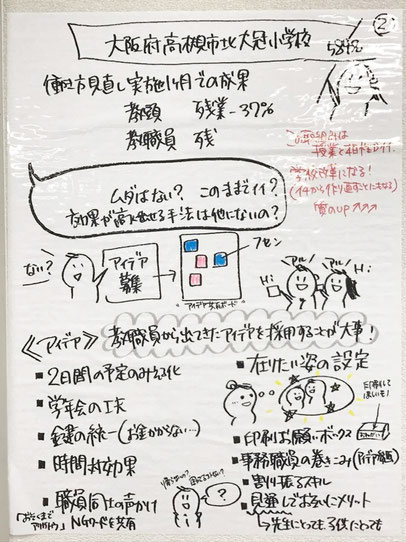 ②
大阪府高槻市北大冠小学校
働き方見直し実施1ヶ月での成果
教頭 残業-39%
教職員 残
授業と相性がイイ。
学校改革になる!
(イチから作り直すことにもなる)
質のUP↗↗↗
ムダはない? このままでイイ?
効果が高く出せる手法は他にないの?
ない?
アイデア
募集
フセン
アイデア共有ボード
アル!
アル!
Hi
Hi
≪アイデア≫ 教職員から出てきたアイデアを採用することが大事!
■2日間の予定のみえる化
■学年会の工夫
■鍵の統一(お金かからない…)
■時間対効果
■職員同士の声かけ
「お先にまで
ありがとう」
NGワードを共有
帰らないの?
?
■在りたい姿の設定
印刷して
ほしいモノ!
■印刷お願いボックス
■事務職員の巻きこみ
■割り振るスキル
■見直してお互いにメリット
↳先生にとっても子供にとっても